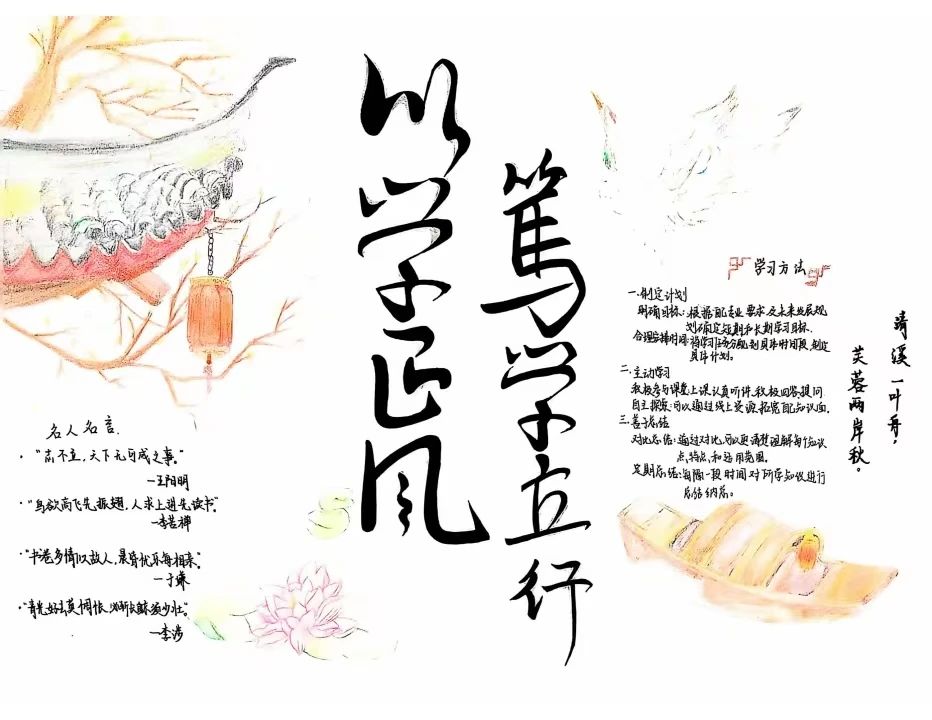 以学正风
笃学立行
名人名言.
·"志不立,天下无可成之事。"
—王阳明
·"鸟欲高飞先振翅,人求上进先读书"。
—李苦禅
·"书卷多情似故人,晨昏忧乐每相亲"。
—于谦
·"青光好去莫惆怅,必斩长鲸须少壮"。
—李涉
学习方法
一.制定计划
明确目标:根据自己专业要求及未来发展规
划确定短期和长期学习目标.
合理安排时间:将学习任务分配到具体时间段,制定
具体计划。
二.主动学习
积极参与课堂:上课认真听讲,积极回答提问
自主探索:可以通过线上资源,拓宽自己知识面.
三.善于总结
对比总结:通过对比,可以更清楚理解每个知识
点,特点,和适用范围。
定期总结:每隔一段时间对所学知识进行
总结
清溪一叶舟,
芙蓉两岸秋。